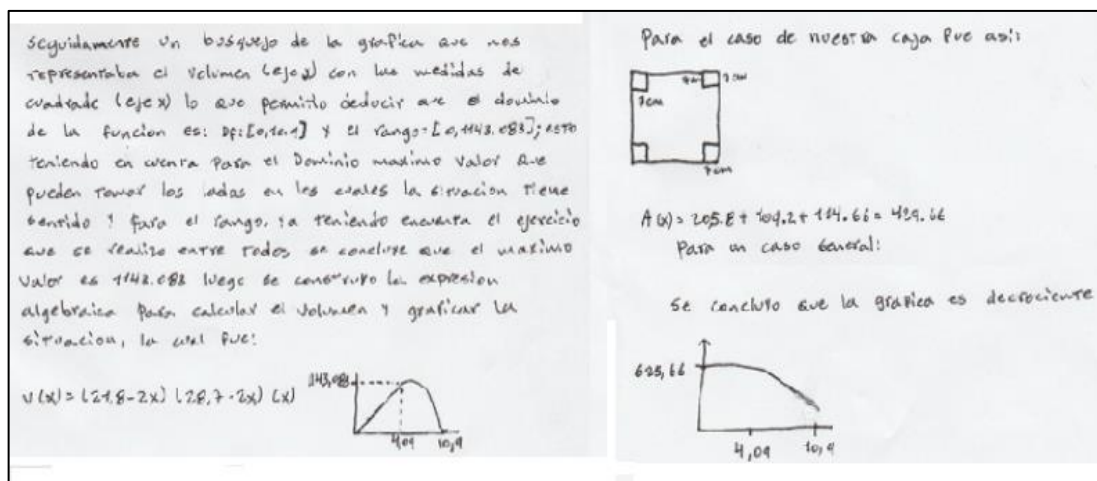 seguidamente un bosquejo de la grafica que nos
representaba el volumen (eje y) con las medidas de
cuadrado (eje x) lo que permitio deducir que el dominio
de la funcion es: Df: [0,10.9] y el rango = [0,1143.083]; esto
teniendo en cuenta para el Dominio maximo valor que
pueden tomar los lados en los cuales la situacion tiene
sentido y para el rango, ya teniendo encuenta el ejercicio
que se realizo entre todos se concluye que el maximo
valor es 1143.083 luego se construyo la expresion
algebraica para calcular el volumen y graficar la
situacion, la cual fue:
v(x) = (21,8-2x) (28,7-2x) (x)
1143,083
4,09 10,9
Para el caso de nuestra caja fue asi:
7cm 7cm
7cm
7cm
A(x) = 205.8 + 109.2 + 114.66 = 429.66
Para un caso General:
Se concluyo que la grafica es decreciente
625,66
4,09 10,9